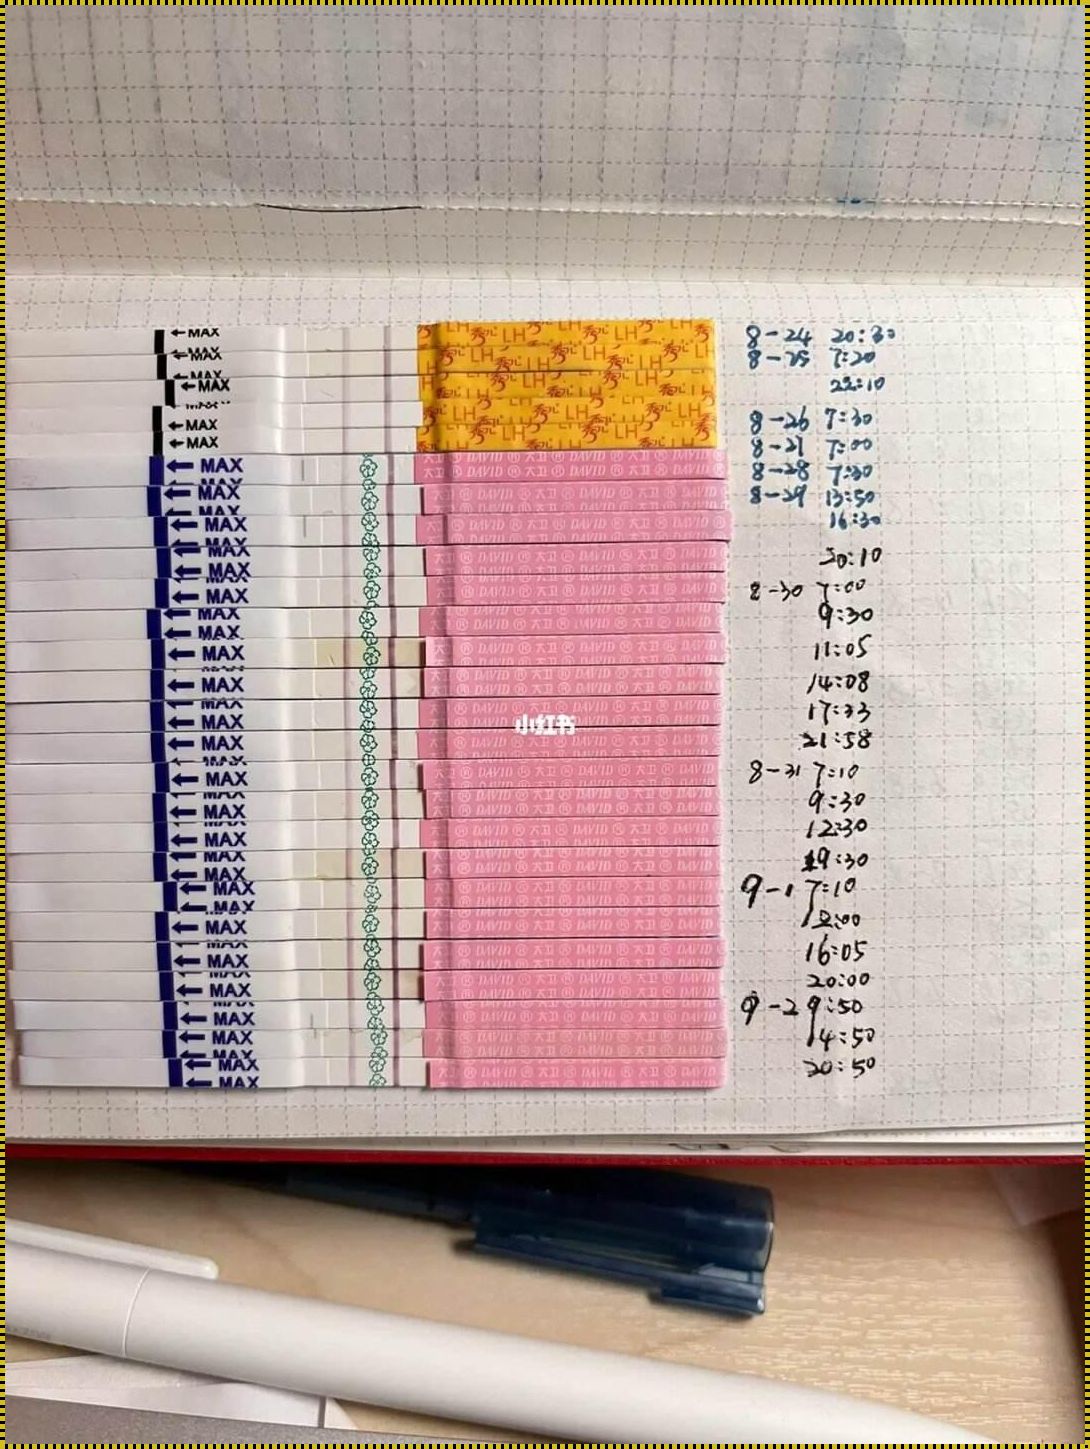 ←MAX
←MAX
←MAX
←MAX
←MAX
秀儿 LH 秀儿 LH 秀儿 LH
← MAX
← MAX
← MAX
← MAX
← MAX
← MAX
← MAX
← MAX
← MAX
← MAX
← MAX
← MAX
← MAX
← MAX
← MAX
← MAX
← MAX
← MAX
← MAX
← MAX
← MAX
← MAX
大卫 ® DAVID ® 大卫 ® DAVID ® 大卫 ® DAVID
小红书
8-24 20:30
8-25 7:20
22:10
8-26 7:30
8-27 7:00
8-28 7:30
8-29 13:50
16:30
20:10
8-30 7:00
9:30
11:05
14:08
17:33
21:58
8-31 7:10
9:30
12:30
19:30
9-1 7:10
16:05
20:00
9-2 9:50
14:50
20:50